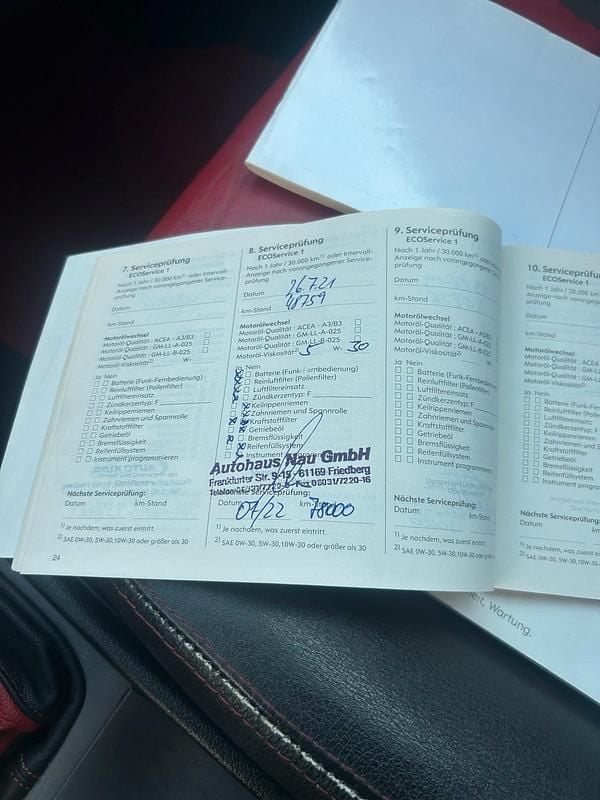 7. Serviceprüfung
ECOService 1
Nach 1 Jahr / 30.000 km¹⁾ oder Intervall-
Anzeige nach vorangegangener Service-
prüfung
Datum
km-Stand
Motorölwechsel
Motoröl-Qualität : ACEA - A3/B3
Motoröl-Qualität : GM-LL-A-025
Motoröl-Qualität : GM-LL-B-025
Motoröl-Viskosität²⁾ W-
Ja Nein
Batterie (Funk-Fernbedienung)
Reinluftfilter (Pollenfilter)
Luftfiltereinsatz
Zündkerzentyp: F
Keilrippenriemen
Zahnriemen und Spannrolle
Kraftstoffilter
Getriebeöl
Bremsflüssigkeit
Reifenfüllsystem
Instrument programmieren
Nächste Serviceprüfung:
Datum km-Stand
1) Je nachdem, was zuerst eintritt.
2) SAE 0W-30, 5W-30,10W-30 oder größer als 30
24
8. Serviceprüfung
ECOService 1
Nach 1 Jahr / 30.000 km¹⁾ oder Intervall-
Anzeige nach vorangegangener Service-
prüfung
Datum 26.7.21
km-Stand 48759
Motorölwechsel
Motoröl-Qualität : ACEA - A3/B3
Motoröl-Qualität : GM-LL-A-025
Motoröl-Qualität : GM-LL-B-025
Motoröl-Viskosität²⁾ 5 W- 30
Ja Nein
Batterie (Funk-Fernbedienung)
Reinluftfilter (Pollenfilter)
Luftfiltereinsatz
Zündkerzentyp: F
Keilrippenriemen
Zahnriemen und Spannrolle
Kraftstoffilter
Getriebeöl
Bremsflüssigkeit
Reifenfüllsystem
Instrument
Autohaus Nau GmbH
Frankfurter Str. 9-15 · 61169 Friedberg
Serviceprüfung:
Datum 07/22 78000
1) Je nachdem, was zuerst eintritt.
2) SAE 0W-30, 5W-30,10W-30 oder größer als 30
9. Serviceprüfung
ECOService 1
Nach 1 Jahr / 30.000 km¹⁾ oder Intervall-
Anzeige nach vorangegangener Service-
prüfung
Datum
km-Stand
Motorölwechsel
Motoröl-Qualität : ACEA - A3/B
Motoröl-Qualität : GM-LL-A-025
Motoröl-Qualität : GM-LL-B-025
Motoröl-Viskosität²⁾ W-
Ja Nein
Batterie (Funk-Fernbedienung
Reinluftfilter (Pollenfilter)
Luftfiltereinsatz
Zündkerzentyp: F
Keilrippenriemen
Zahnriemen und Spannrolle
Kraftstoffilter
Getriebeöl
Bremsflüssigkeit
Reifenfüllsystem
Instrument programmieren
Nächste Serviceprüfung:
Datum km-Stand
1) Je nachdem, was zuerst eintritt.
2) SAE 0W-30, 5W-30,10W-30 oder größer als
10. Serviceprüfu
ECOService 1
Nach 1 Jahr / 30.000 km
Anzeige nach vorangeg
prüfung
Datum
km-Stand
Motorölwechsel
Motoröl-Qualität : ACEA
Motoröl-Qualität : GM-LL
Motoröl-Qualität : GM-LL
Motoröl-Viskosität²⁾
Ja Nein
Batterie (Funk-
Reinluftfilter (Po
Luftfiltereinsatz
Zündkerzentyp:
Keilrippenriemen
Zahnriemen und
Kraftstoffilter
Getriebeöl
Bremsflüssigkeit
Reifenfüllsystem
Instrument prog
Nächste Serviceprüfung:
Datum km-S
1) Je nachdem, was zuerst
2) SAE 0W-30, 5W-30,10W-30
heit, Wartung.